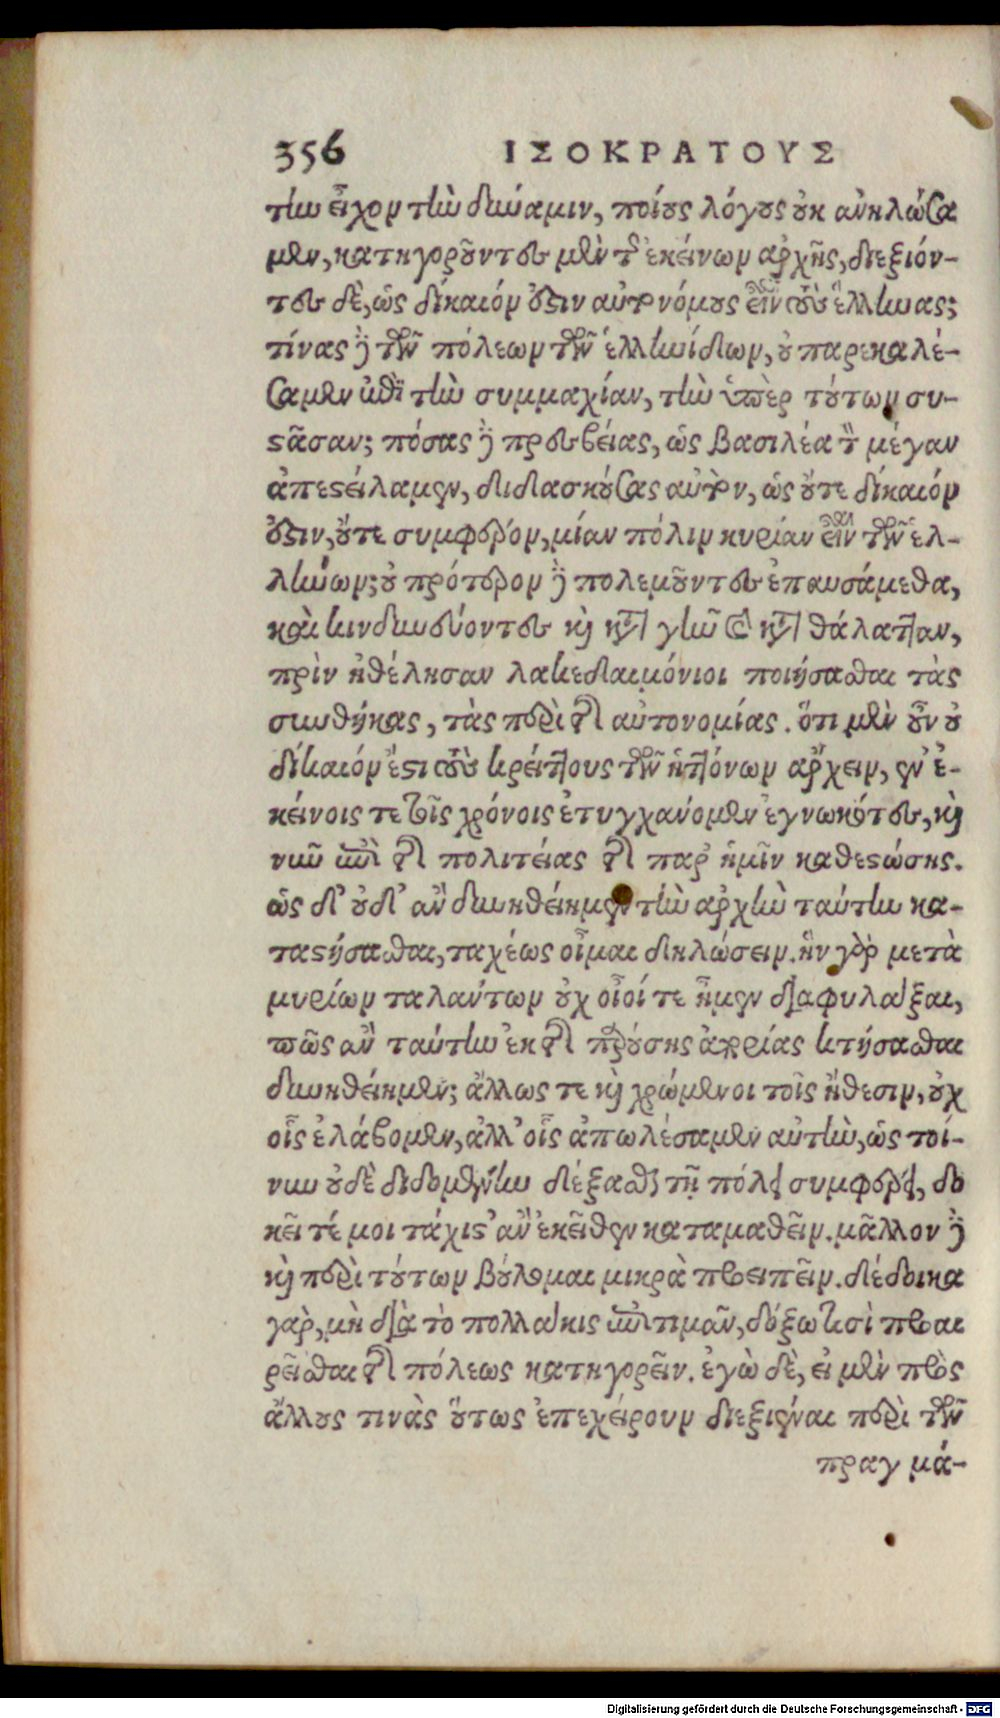 356 ΙΣΟΚΡΑΤΟΥΣ
την εἶχον τὴν δύναμιν, ποίους λόγους οὐκ ἀνηλώσα
μεν, κατηγοροῦντες μὲν τῆς ἐκείνων ἀρχῆς, διεξιόν-
τες δὲ, ὡς δίκαιόν ἐστιν αὐτονόμους εἶναι τοὺς ἕλληνας;
τίνας δὲ τῶν πόλεων τῶν ἑλληνίδων, οὐ παρεκαλέ-
σαμεν ἐπὶ τὴν συμμαχίαν, τὴν ὑπὲρ τούτων συ-
στᾶσαν; πόσας δὲ πρεσβείας, ὡς βασιλέα τὸν μέγαν
ἀπεστείλαμεν, διδασκούσας αὐτὸν, ὡς οὔτε δίκαιόν
ἐστιν, οὔτε συμφέρον, μίαν πόλιν κυρίαν εἶναι τῶν ἑλ-
λήνων; οὐ πρότερον δὲ πολεμοῦντες ἐπαυσάμεθα,
καὶ κινδυνεύοντες καὶ κατὰ γῆν καὶ κατὰ θάλατταν,
πρὶν ἠθέλησαν λακεδαιμόνιοι ποιήσασθαι τὰς
συνθήκας, τὰς περὶ τῆς αὐτονομίας. ὅτι μὲν οὖν οὐ
δίκαιόν ἐστι τοὺς κρείττους τῶν ἡττόνων ἄρχειν, ἐν ἐ-
κείνοις τε τοῖς χρόνοις ἐτυγχάνομεν ἐγνωκότες, καὶ
νῦν ἐπὶ τῆς πολιτείας τῆς παρ’ ἡμῖν καθεστώσης.
ὡς δ’ οὐδ’ ἂν δυνηθείημεν τὴν ἀρχὴν ταύτην κα-
ταστήσασθαι, ταχέως οἶμαι δηλώσειν. ἣν γὰρ μετὰ
μυρίων ταλάντων οὐχ οἷοί τε ἦμεν διαφυλάξαι,
πῶς ἂν ταύτην ἐκ τῆς παρούσης ἀπορίας κτήσασθαι
δυνηθείημεν; ἄλλως τε καὶ χρώμενοι τοῖς ἤθεσιν, οὐχ
οἷς ἐλάβομεν, ἀλλ’ οἷς ἀπωλέσαμεν αὐτὴν, ὡς τοί-
νυν οὐδὲ διδομένην δέξασθαι τῇ πόλει συμφέρει, δο
κεῖ τέ μοι τάχιστ’ ἂν ἐκεῖθεν καταμαθεῖν. μᾶλλον δὲ
καὶ περὶ τούτων βούλομαι μικρὰ προειπεῖν. δέδοικα
γὰρ, μὴ διὰ τὸ πολλάκις ἐπιτιμᾶν, δόξω τισὶ προαι
ρεῖσθαι τῆς πόλεως κατηγορεῖν. ἐγὼ δὲ, εἰ μὲν πρὸς
ἄλλους τινὰς οὕτως ἐπεχείρουν διεξιέναι περὶ τῶν
πραγμά-
Digitalisierung gefördert durch die Deutsche Forschungsgemeinschaft - DFG